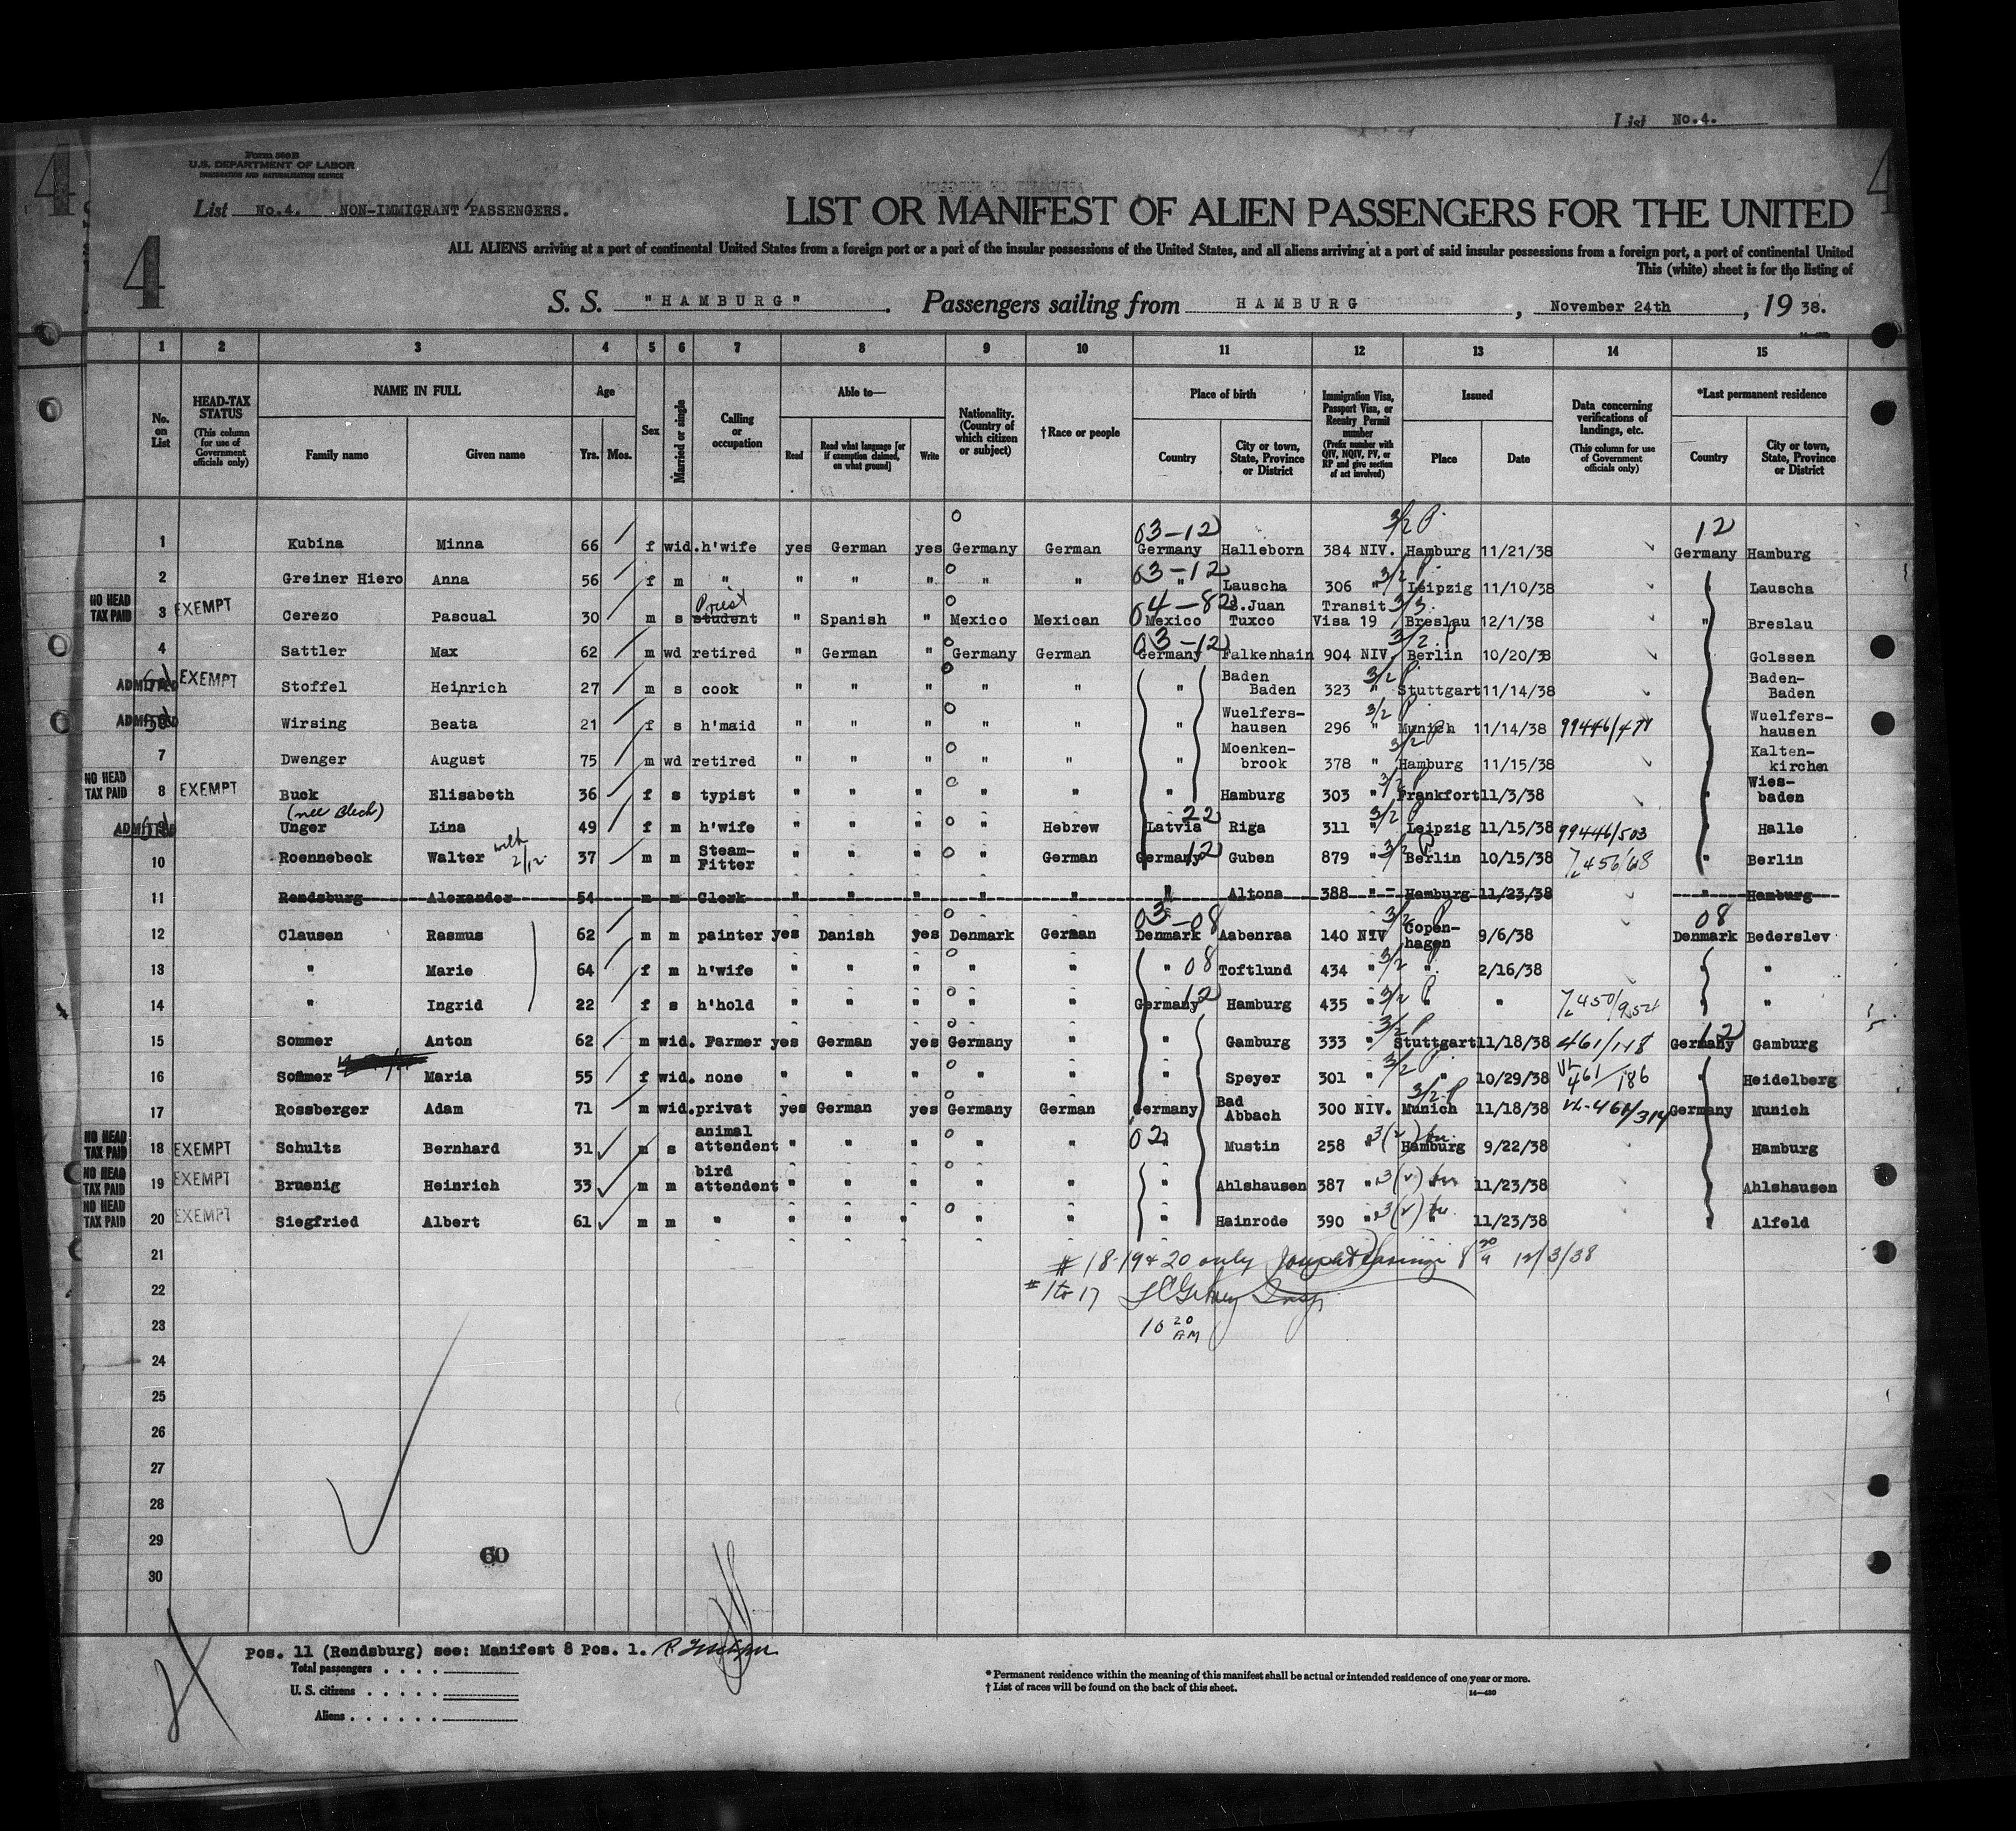 List No.4.
4
4
Form 500 B
U.S. DEPARTMENT OF LABOR
IMMIGRATION AND NATURALIZATION SERVICE
List No.4. NON-IMMIGRANT PASSENGERS.
4
LIST OR MANIFEST OF ALIEN PASSENGERS FOR THE UNITED
ALL ALIENS arriving at a port of continental United States from a foreign port or a port of the insular possessions of the United States, and all aliens arriving at a port of said insular possessions from a foreign port, a port of continental United
This (white) sheet is for the listing of
S. S. "HAMBURG". Passengers sailing from HAMBURG, November 24th, 1938.
1 2 3 4 5 6 7 8 9 10 11 12 13 14 15
No. on List
HEAD-TAX STATUS (This column for use of Government officials only)
NAME IN FULL
Family name
Given name
Age
Yrs. Mos.
Sex
Married or single
Calling or occupation
Able to—
Read
Read what language [or if exemption claimed, on what ground]
Write
Nationality. (Country of which citizen or subject)
†Race or people
Place of birth
Country
City or town, State, Province or District
Immigration Visa, Passport Visa, or Reentry Permit number (Prefix number with QIV, NQIV, PV, or RP and give section of act involved)
Issued
Place
Date
Data concerning verifications of landings, etc. (This column for use of Government officials only)
*Last permanent residence
Country
City or town, State, Province or District
03-12 3/2 P. 12
1 Kubina Minna 66 f wid. h'wife yes German yes Germany German Germany Halleborn 384 NIV. Hamburg 11/21/38 Germany Hamburg
03-12 3/2 P
2 Greiner Hiero Anna 56 f m " " " " " " " Lauscha 306 " Leipzig 11/10/38 Lauscha
NO HEAD TAX PAID 3 EXEMPT Cerezo Pascual 30 m s Priest student " Spanish " Mexico Mexican 04-82 Mexico S.Juan Tuxco Transit Visa 19 3/3. Breslau 12/1/38 " Breslau
03-12 3/2 P
4 Sattler Max 62 m wd retired " German " Germany German Germany Falkenhain 904 NIV. Berlin 10/20/38 Golssen
ADMITTED EXEMPT Stoffel Heinrich 27 m s cook " " " " " " Baden Baden 323 " 3/2 P. Stuttgart 11/14/38 Baden-Baden
ADMITTED Wirsing Beata 21 f s h'maid " " " " " " Wuelfershausen 296 " 3/2 P. Munich 11/14/38 99446/471 Wuelfershausen
7 Dwenger August 75 m wd retired " " " " " " Moenkenbrook 378 " 3/2 P Hamburg 11/15/38 Kaltenkirchen
NO HEAD TAX PAID 8 EXEMPT Buck Elisabeth 36 f s typist " " " " " " Hamburg 303 " 3/2 P Frankfort 11/3/38 Wiesbaden
(nee Blech)
ADMITTED Unger Lina 49 f m h'wife " " " " Hebrew Latvia 22 Riga 311 " 3/2 P Leipzig 11/15/38 99446/503 Halle
10 Roennebeck Walter 37 m m Steam-Fitter " " " " German Germany 12 Guben 879 " 3/2 Berlin 10/15/38 456/68 " Berlin
11 Rendsburg Alexander 54 m m Clerk " " " " " " Altona 388 " Hamburg 11/23/38 " Hamburg
03-08 3/2 P 08
12 Clausen Rasmus 62 m m painter yes Danish yes Denmark German Denmark Aabenraa 140 NIV Copenhagen 9/6/38 Denmark Bederslev
13 " Marie 64 f m h'wife " " " " " " 08 Toftlund 434 " 3/2 " 2/16/38 " "
14 " Ingrid 22 f s h'hold " " " " " Germany 12 Hamburg 435 " 3/2 P " " " "
15 Sommer Anton 62 m wid. Farmer yes German yes Germany " " Gamburg 333 " 3/2 P Stuttgart 11/18/38 461/148 Germany 12 Gamburg
16 Sommer Maria 55 f wid. none " " " " " " Speyer 301 " 3/2 P " 10/29/38 VL 461/186 " Heidelberg
17 Rossberger Adam 71 m wid. privat yes German yes Germany German Germany Bad Abbach 300 NIV. 3/2 P Munich 11/18/38 VL-461/314 Germany Munich
NO HEAD TAX PAID 18 EXEMPT Schultz Bernhard 31 m s animal attendent " " " " " 02 " Mustin 258 " 3(2) Hamburg 9/22/38 Hamburg
NO HEAD TAX PAID 19 EXEMPT Bruenig Heinrich 33 m m bird attendent " " " " " " Ahlshausen 387 " 3(2) " 11/23/38 Ahlshausen
NO HEAD TAX PAID 20 EXEMPT Siegfried Albert 61 m m " " " " " " " Hainrode 390 " 3(2) " 11/23/38 " Alfeld
21 #18-19 & 20 only 12/3/38
22 #1 to 17 Insp
23 10 20 AM
24
25
26
27
28
29
60
30
Pos. 11 (Rendsburg) see: Manifest 8 Pos. 1.
Total passengers . . . .
U. S. citizens . . . . .
Aliens . . . . . .
* Permanent residence within the meaning of this manifest shall be actual or intended residence of one year or more.
† List of races will be found on the back of this sheet.
14—430